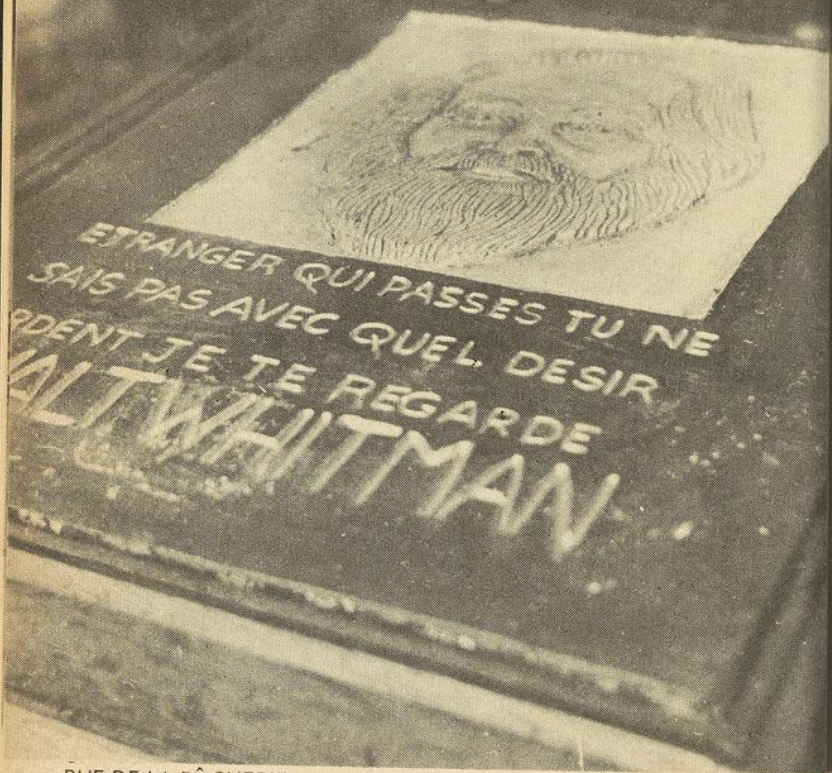 ETRANGER QUI PASSES TU NE
SAIS PAS AVEC QUEL DESIR
RDENT JE TE REGARDE
ALT WHITMAN
RUE DE LA